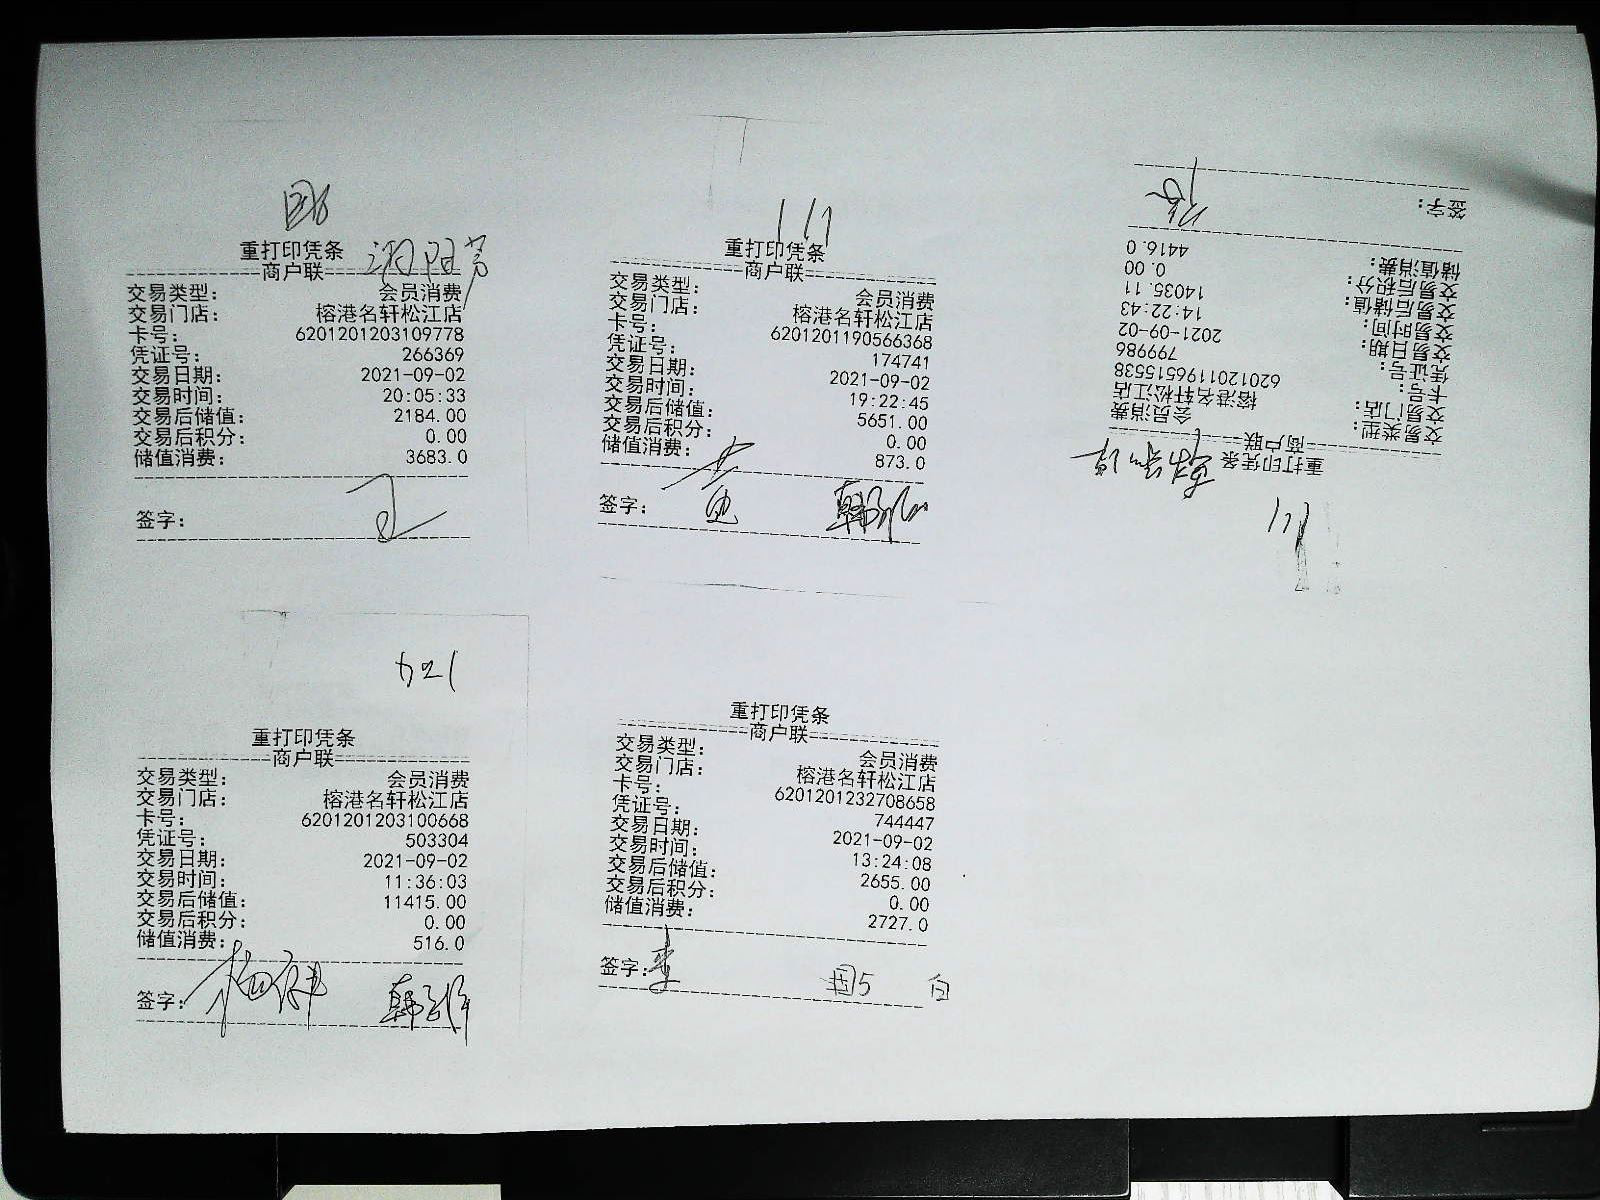 重打印凭条
商户联
交易类型： 会员消费
交易门店： 榕港名轩松江店
卡号： 6201201203109778
凭证号： 266369
交易日期： 2021-09-02
交易时间： 20:05:33
交易后储值： 2184.00
交易后积分： 0.00
储值消费： 3683.0
签字：
111
重打印凭条
商户联
交易类型： 会员消费
交易门店： 榕港名轩松江店
卡号： 6201201190566368
凭证号： 174741
交易日期： 2021-09-02
交易时间： 19:22:45
交易后储值： 5651.00
交易后积分： 0.00
储值消费： 873.0
签字：
重打印凭条
商户联
交易类型： 会员消费
交易门店： 榕港名轩松江店
卡号： 6201201196515538
凭证号： 799986
交易日期： 2021-09-02
交易时间： 14:22:43
交易后储值： 14035.11
交易后积分： 0.00
储值消费： 4416.0
签字：
重打印凭条
商户联
交易类型： 会员消费
交易门店： 榕港名轩松江店
卡号： 6201201203100668
凭证号： 503304
交易日期： 2021-09-02
交易时间： 11:36:03
交易后储值： 11415.00
交易后积分： 0.00
储值消费： 516.0
签字：
重打印凭条
商户联
交易类型： 会员消费
交易门店： 榕港名轩松江店
卡号： 6201201232708658
凭证号： 744447
交易日期： 2021-09-02
交易时间： 13:24:08
交易后储值： 2655.00
交易后积分： 0.00
储值消费： 2727.0
签字： 李 国5 白